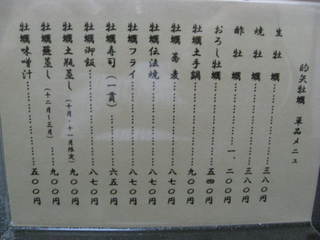 的矢牡蠣 単品メニュ
生牡蠣……三八〇円
焼牡蠣……三八〇円
酢牡蠣……一、二〇〇円
おろし牡蠣……五四〇円
牡蠣土手鍋……九〇〇円
牡蠣蕎麦……八七〇円
牡蠣伝法焼……八七〇円
牡蠣フライ……八七〇円
牡蠣寿司(一貫)……六五〇円
牡蠣御飯……八七〇円
牡蠣土瓶蒸し(十月・十一月限定)……九〇〇円
牡蠣蕪蒸し(十二月〜三月)……九〇〇円
牡蠣味噌汁……五〇〇円